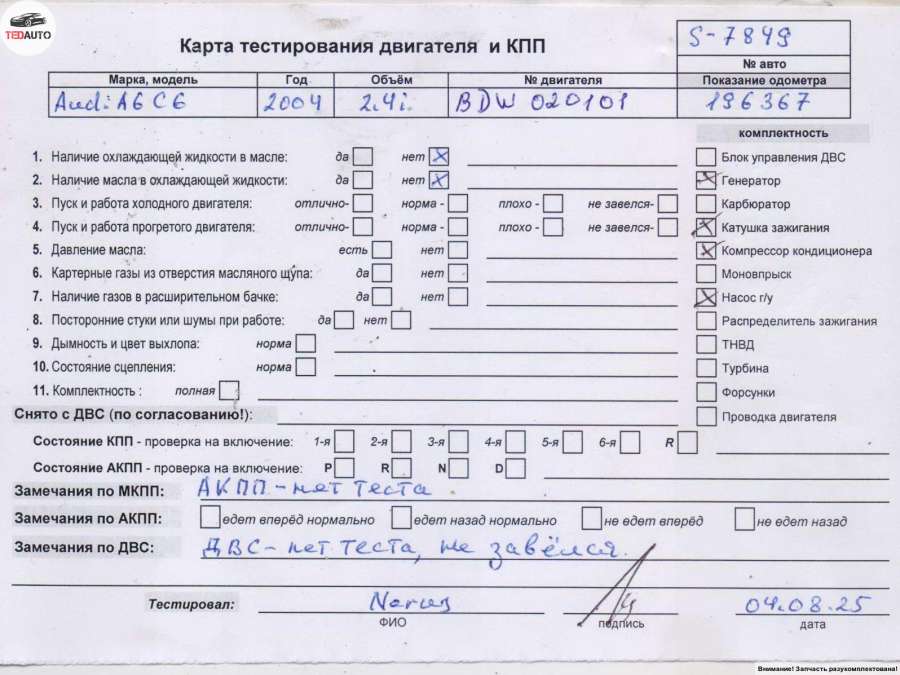 TEDAUTO
Карта тестирования двигателя и КПП
S-7849
№ авто
Марка, модель Год Объём № двигателя Показание одометра
Audi A6 C6 2004 2.4i BDW 020101 196367
комплектность
1. Наличие охлаждающей жидкости в масле: да нет Блок управления ДВС
2. Наличие масла в охлаждающей жидкости: да нет Генератор
3. Пуск и работа холодного двигателя: отлично- норма - плохо - не завелся- Карбюратор
4. Пуск и работа прогретого двигателя: отлично- норма - плохо - не завелся- Катушка зажигания
5. Давление масла: есть нет Компрессор кондиционера
6. Картерные газы из отверстия масляного щупа: да нет Моновпрыск
7. Наличие газов в расширительном бачке: да нет Насос г/у
8. Посторонние стуки или шумы при работе: да нет Распределитель зажигания
9. Дымность и цвет выхлопа: норма ТНВД
10. Состояние сцепления: норма Турбина
11. Комплектность : полная Форсунки
Снято с ДВС (по согласованию!): Проводка двигателя
Состояние КПП - проверка на включение: 1-я 2-я 3-я 4-я 5-я 6-я R
Состояние АКПП - проверка на включение: P R N D
Замечания по МКПП: АКПП - нет теста
Замечания по АКПП: едет вперёд нормально едет назад нормально не едет вперёд не едет назад
Замечания по ДВС: ДВС - нет теста, не завёлся.
Тестировал: 04.08.25
ФИО подпись дата
Внимание! Запчасть разукомплектована!